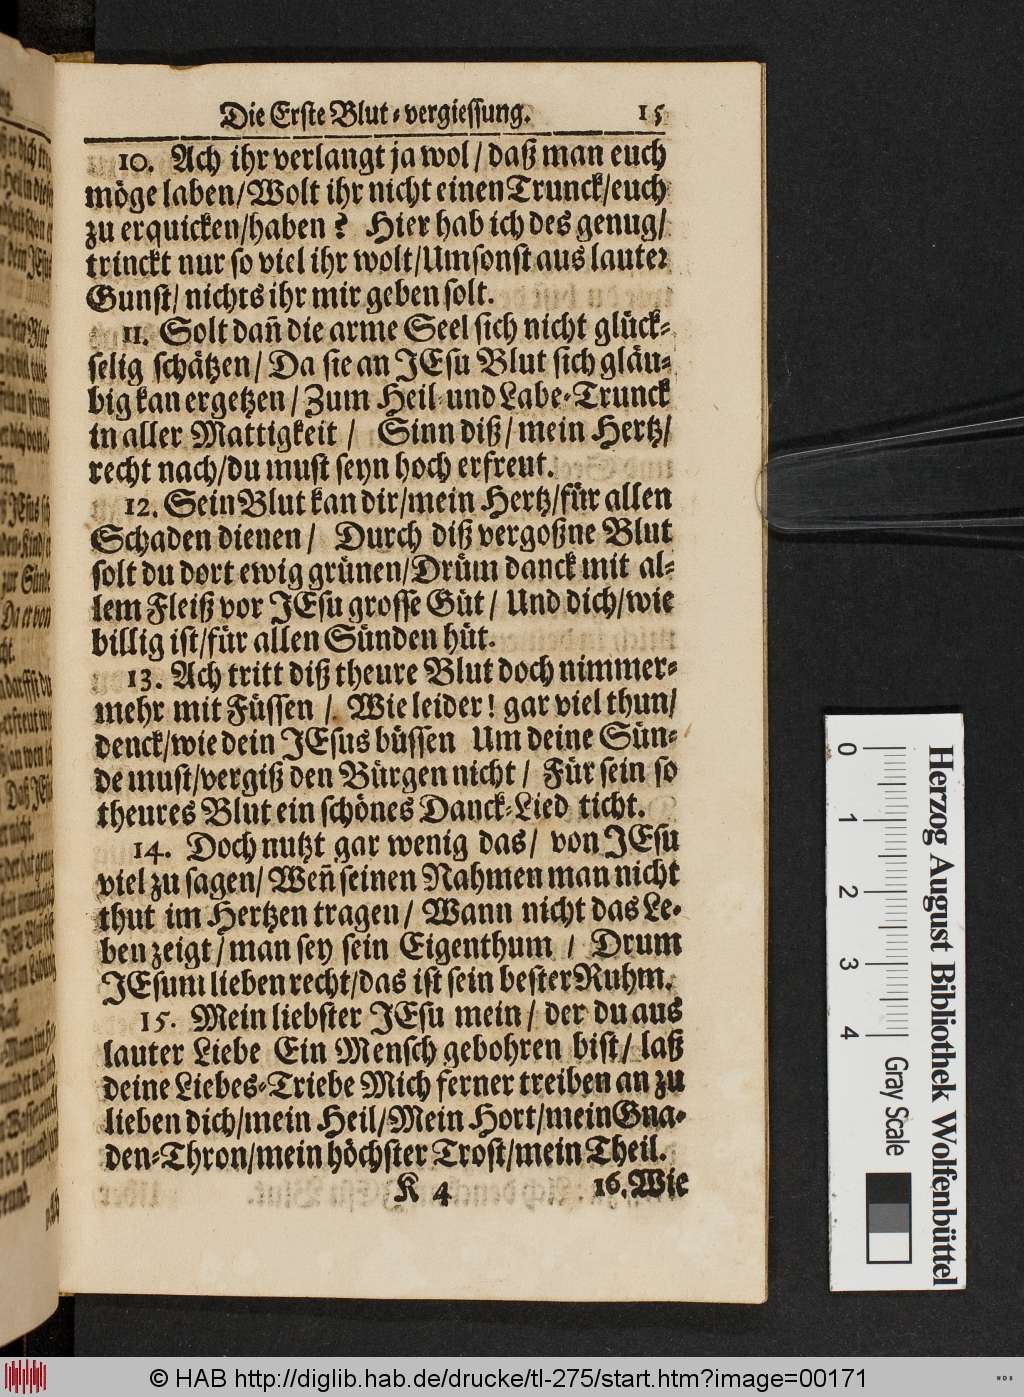 Die Erste Blut-vergiessung. 15
10. Ach ihr verlangt ja wol / daß man euch
möge laben/Wolt ihr nicht einen Trunck/euch
zu erquicken/haben? Hier hab ich des genug/
trinckt nur so viel ihr wolt/Umsonst aus lauter
Gunst/ nichts ihr mir geben solt.
11. Solt dañ die arme Seel sich nicht glück-
selig schätzen/ Da sie an JEsu Blut sich gläu-
big kan ergetzen / Zum Heil und Labe-Trunck
in aller Mattigkeit / Sinn diß/ mein Hertz/
recht nach/du must seyn hoch erfreut.
12. Sein Blut kan dir/mein Hertz/für allen
Schaden dienen / Durch diß vergoßne Blut
solt du dort ewig grünen/Drüm danck mit al-
lem Fleiß vor JEsu grosse Güt / Und dich/wie
billig ist/für allen Sünden hüt.
13. Ach tritt diß theure Blut doch nimmer-
mehr mit Füssen / Wie leider! gar viel thun/
denck/wie dein JEsus büssen Um deine Sün-
de must/vergiß den Bürgen nicht / Für sein so
theures Blut ein schönes Danck-Lied ticht.
14. Doch nutzt gar wenig das/ von JEsu
viel zu sagen/ Weñ seinen Nahmen man nicht
thut im Hertzen tragen/ Wann nicht das Le-
ben zeigt/man sey sein Eigenthum / Drum
JEsum lieben recht/das ist sein bester Ruhm.
15. Mein liebster JEsu mein/ der du aus
lauter Liebe Ein Mensch gebohren bist/ laß
deine Liebes-Triebe Mich ferner treiben an zu
lieben dich/mein Heil/Mein Hort/mein Gna-
den-Thron/mein höchster Trost/mein Theil.
K 4 16. Wie
0 1 2 3 4
Gray Scale
Herzog August Bibliothek Wolfenbüttel
© HAB http://diglib.hab.de/drucke/tl-275/start.htm?image=00171